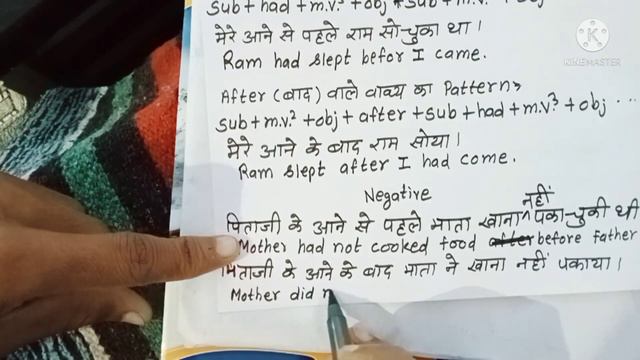 sub + had + m.v.³ + obj + sub + m.v.² + obj
मेरे आने से पहले राम सो चुका था।
Ram had slept befor I came.
After (बाद) वाले वाक्य का Pattern→
sub + m.v.² + obj + after + sub + had + m.v.³ + obj ...
मेरे आने के बाद राम सोया।
Ram slept after I had come.
Negative
पिताजी के आने से पहले माता खाना नहीं पका चुकी थी
Mother had not cooked food after before father
पिताजी के आने के बाद माता ने खाना नहीं पकाया।
Mother did n
KINEMASTER